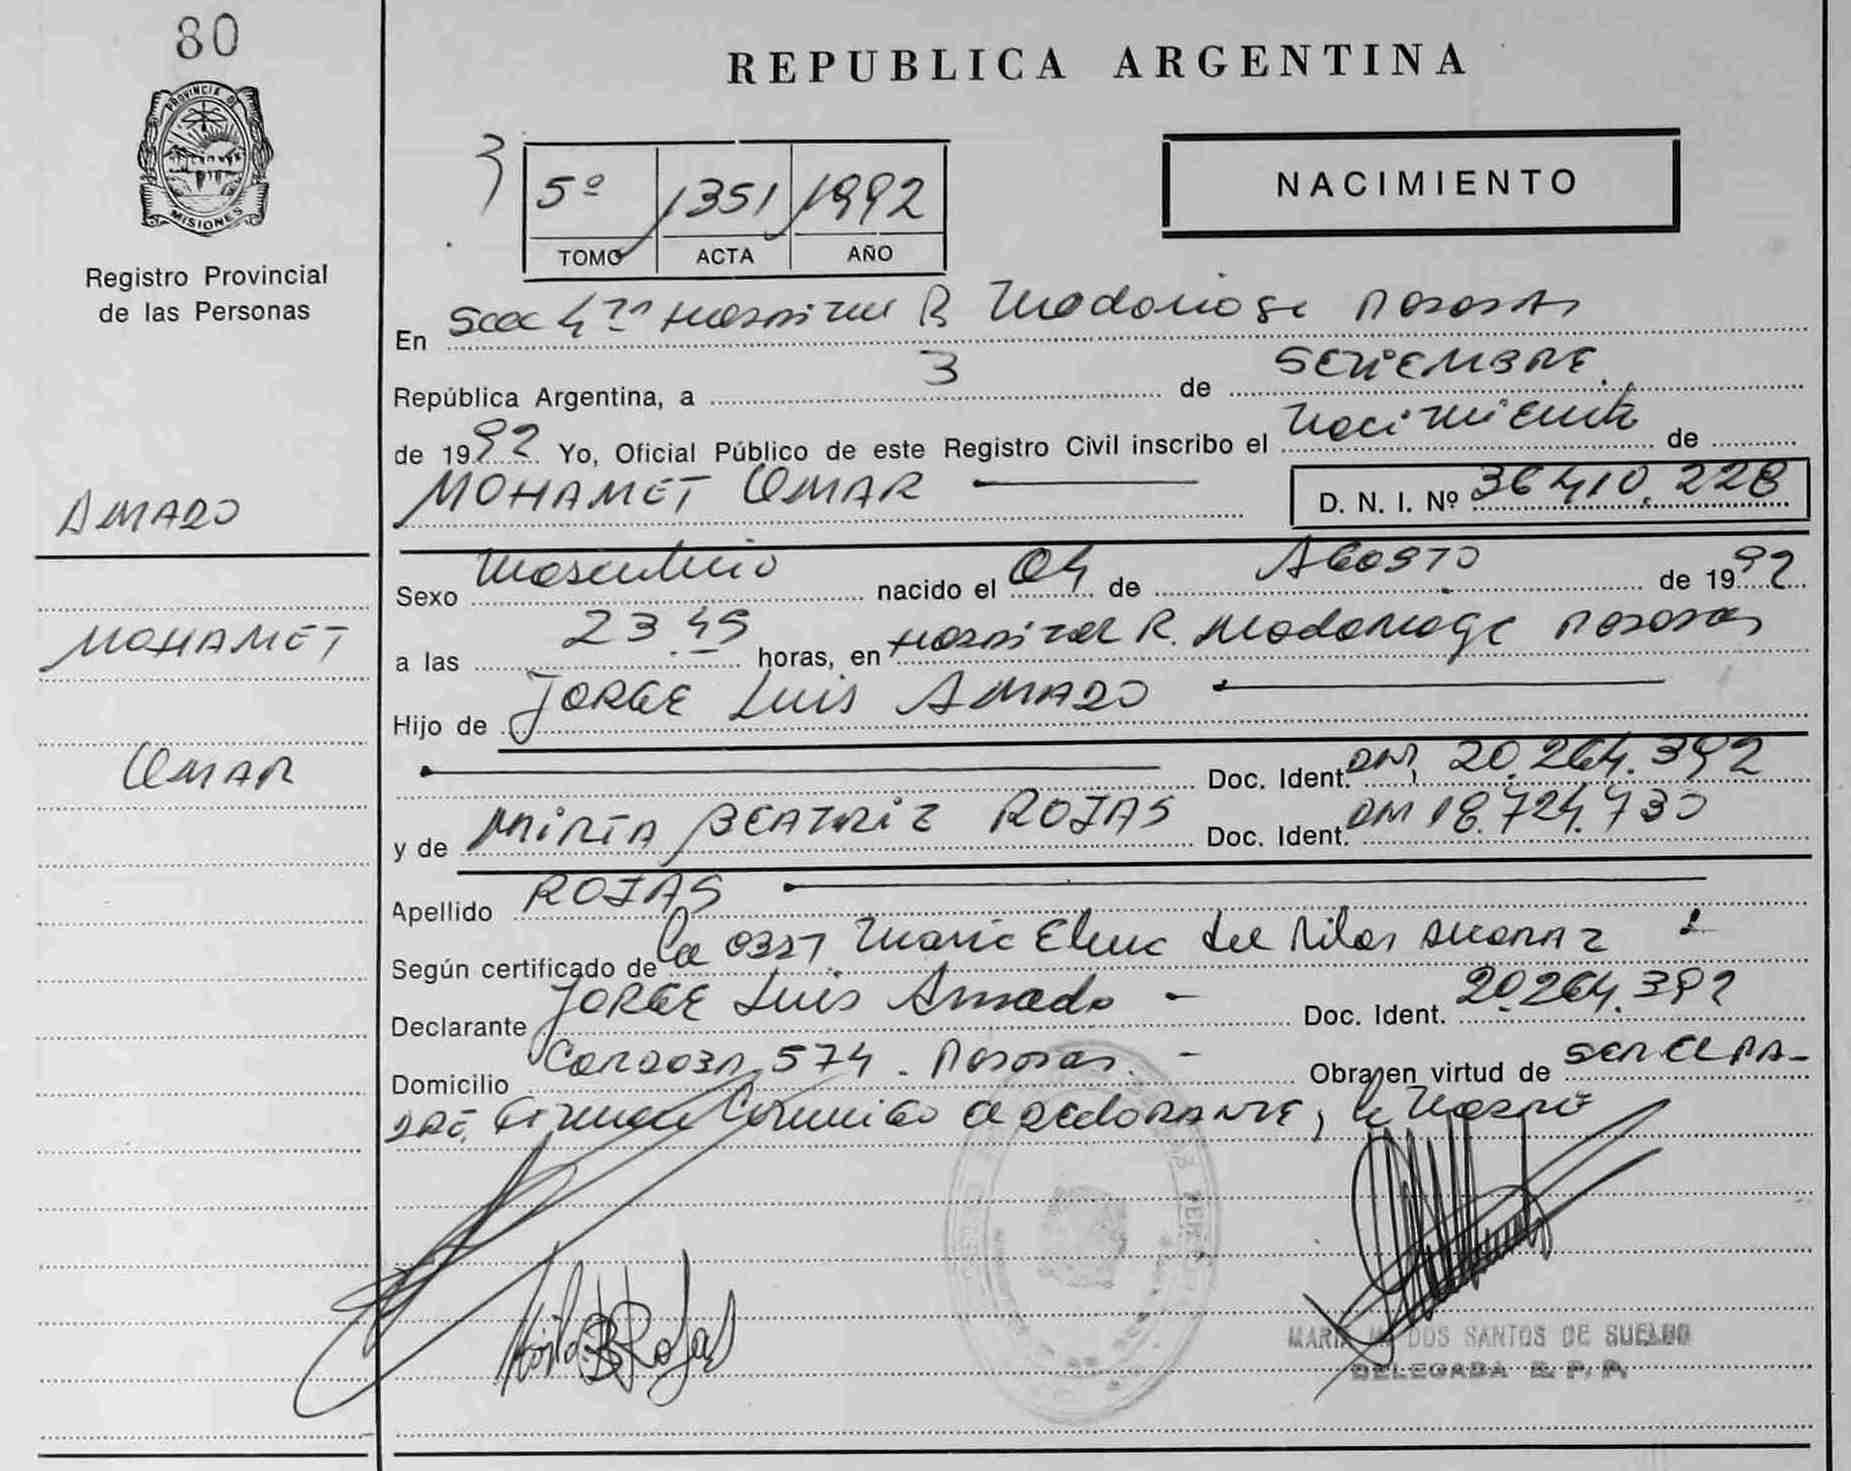 80
PROVINCIA DE
MISIONES
Registro Provincial
de las Personas
AMADO
MOHAMET
OMAR
REPUBLICA ARGENTINA
3
5º 1351 1992
TOMO ACTA AÑO
NACIMIENTO
En Secc 4ta Hospital R Madariaga Posadas
República Argentina, a 3 de SETIEMBRE
de 1992 Yo, Oficial Público de este Registro Civil inscribo el Nacimiento de
MOHAMET OMAR D. N. I. Nº 36.410.228
Sexo Masculino nacido el 04 de AGOSTO de 1992
a las 23.45 horas, en Hospital R. Madariaga Posadas
Hijo de JORGE LUIS AMADO
Doc. Ident. DNI 20.264.392
y de MIRTA BEATRIZ ROJAS Doc. Ident. DNI 18.724.730
Apellido ROJAS
Según certificado de la Obst Maria Elena del Pilar
Declarante JORGE Luis Amado - Doc. Ident. 20.264.392
Domicilio Cordoba 574 - Posadas. - Obra en virtud de SER EL PA-
DRE. Firman Conmigo el declarante, la
MARIA M. DOS SANTOS DE
DELEGADA R. P. P.